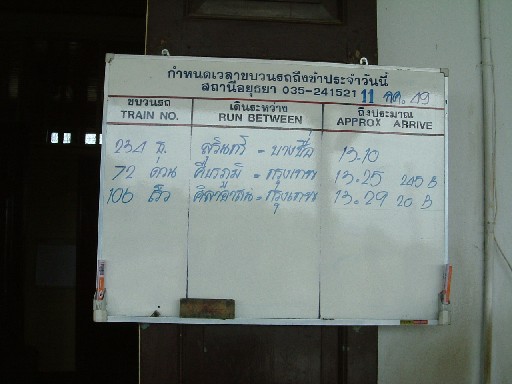 กำหนดเวลาขบวนรถถึงช้าประจำวันนี้
สถานีอยุธยา 035-241521 11 กค. 49
ขบวนรถ เดินระหว่าง ถึงประมาณ
TRAIN NO. RUN BETWEEN APPROX ARRIVE
234 ธ. สุรินทร์ - บางซื่อ 13.10
72 ด่วน ศีขรภูมิ - กรุงเทพ 13.25
106 เร็ว ศิลาอาสน์ - กรุงเทพ 13.29 20 B